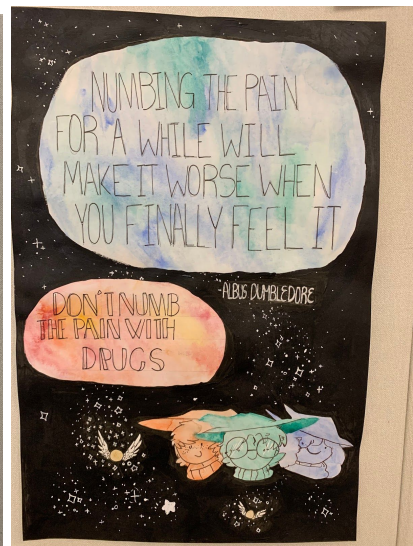 NUMBING THE PAIN
FOR A WHILE WILL
MAKE IT WORSE WHEN
YOU FINALLY FEEL IT
-ALBUS DUMBLEDORE
DON'T NUMB
THE PAIN WITH
DRUGS